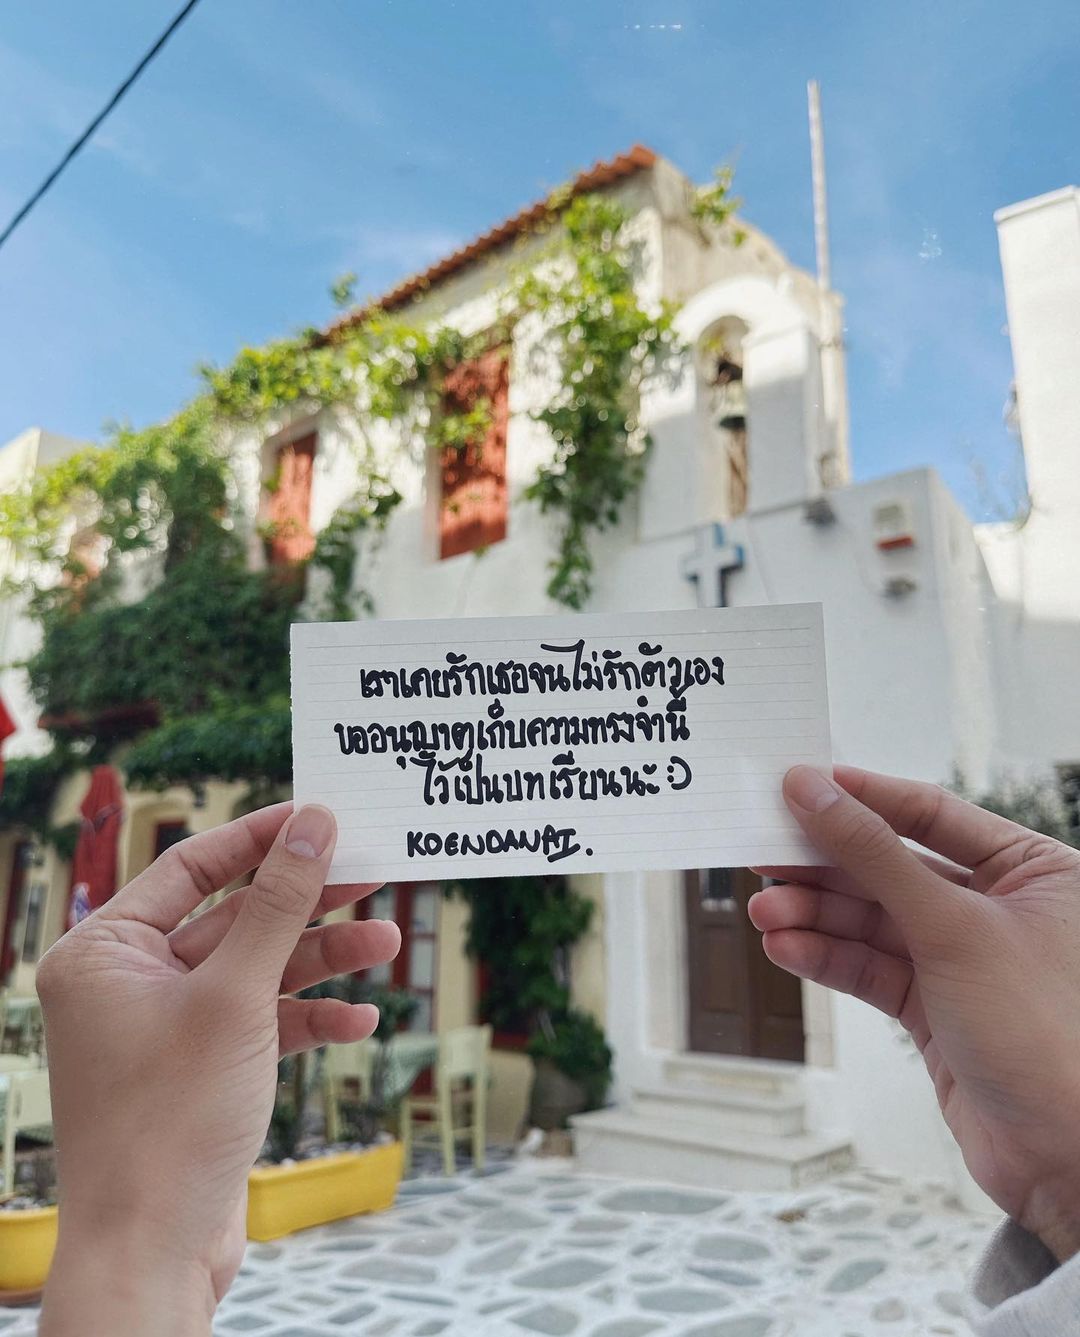 เราเคยรักเธอจนไม่รักตัวเอง
ขออนุญาตเก็บความทรงจำนี้
ไว้เป็นบทเรียนนะ :)
KOENDANAI.